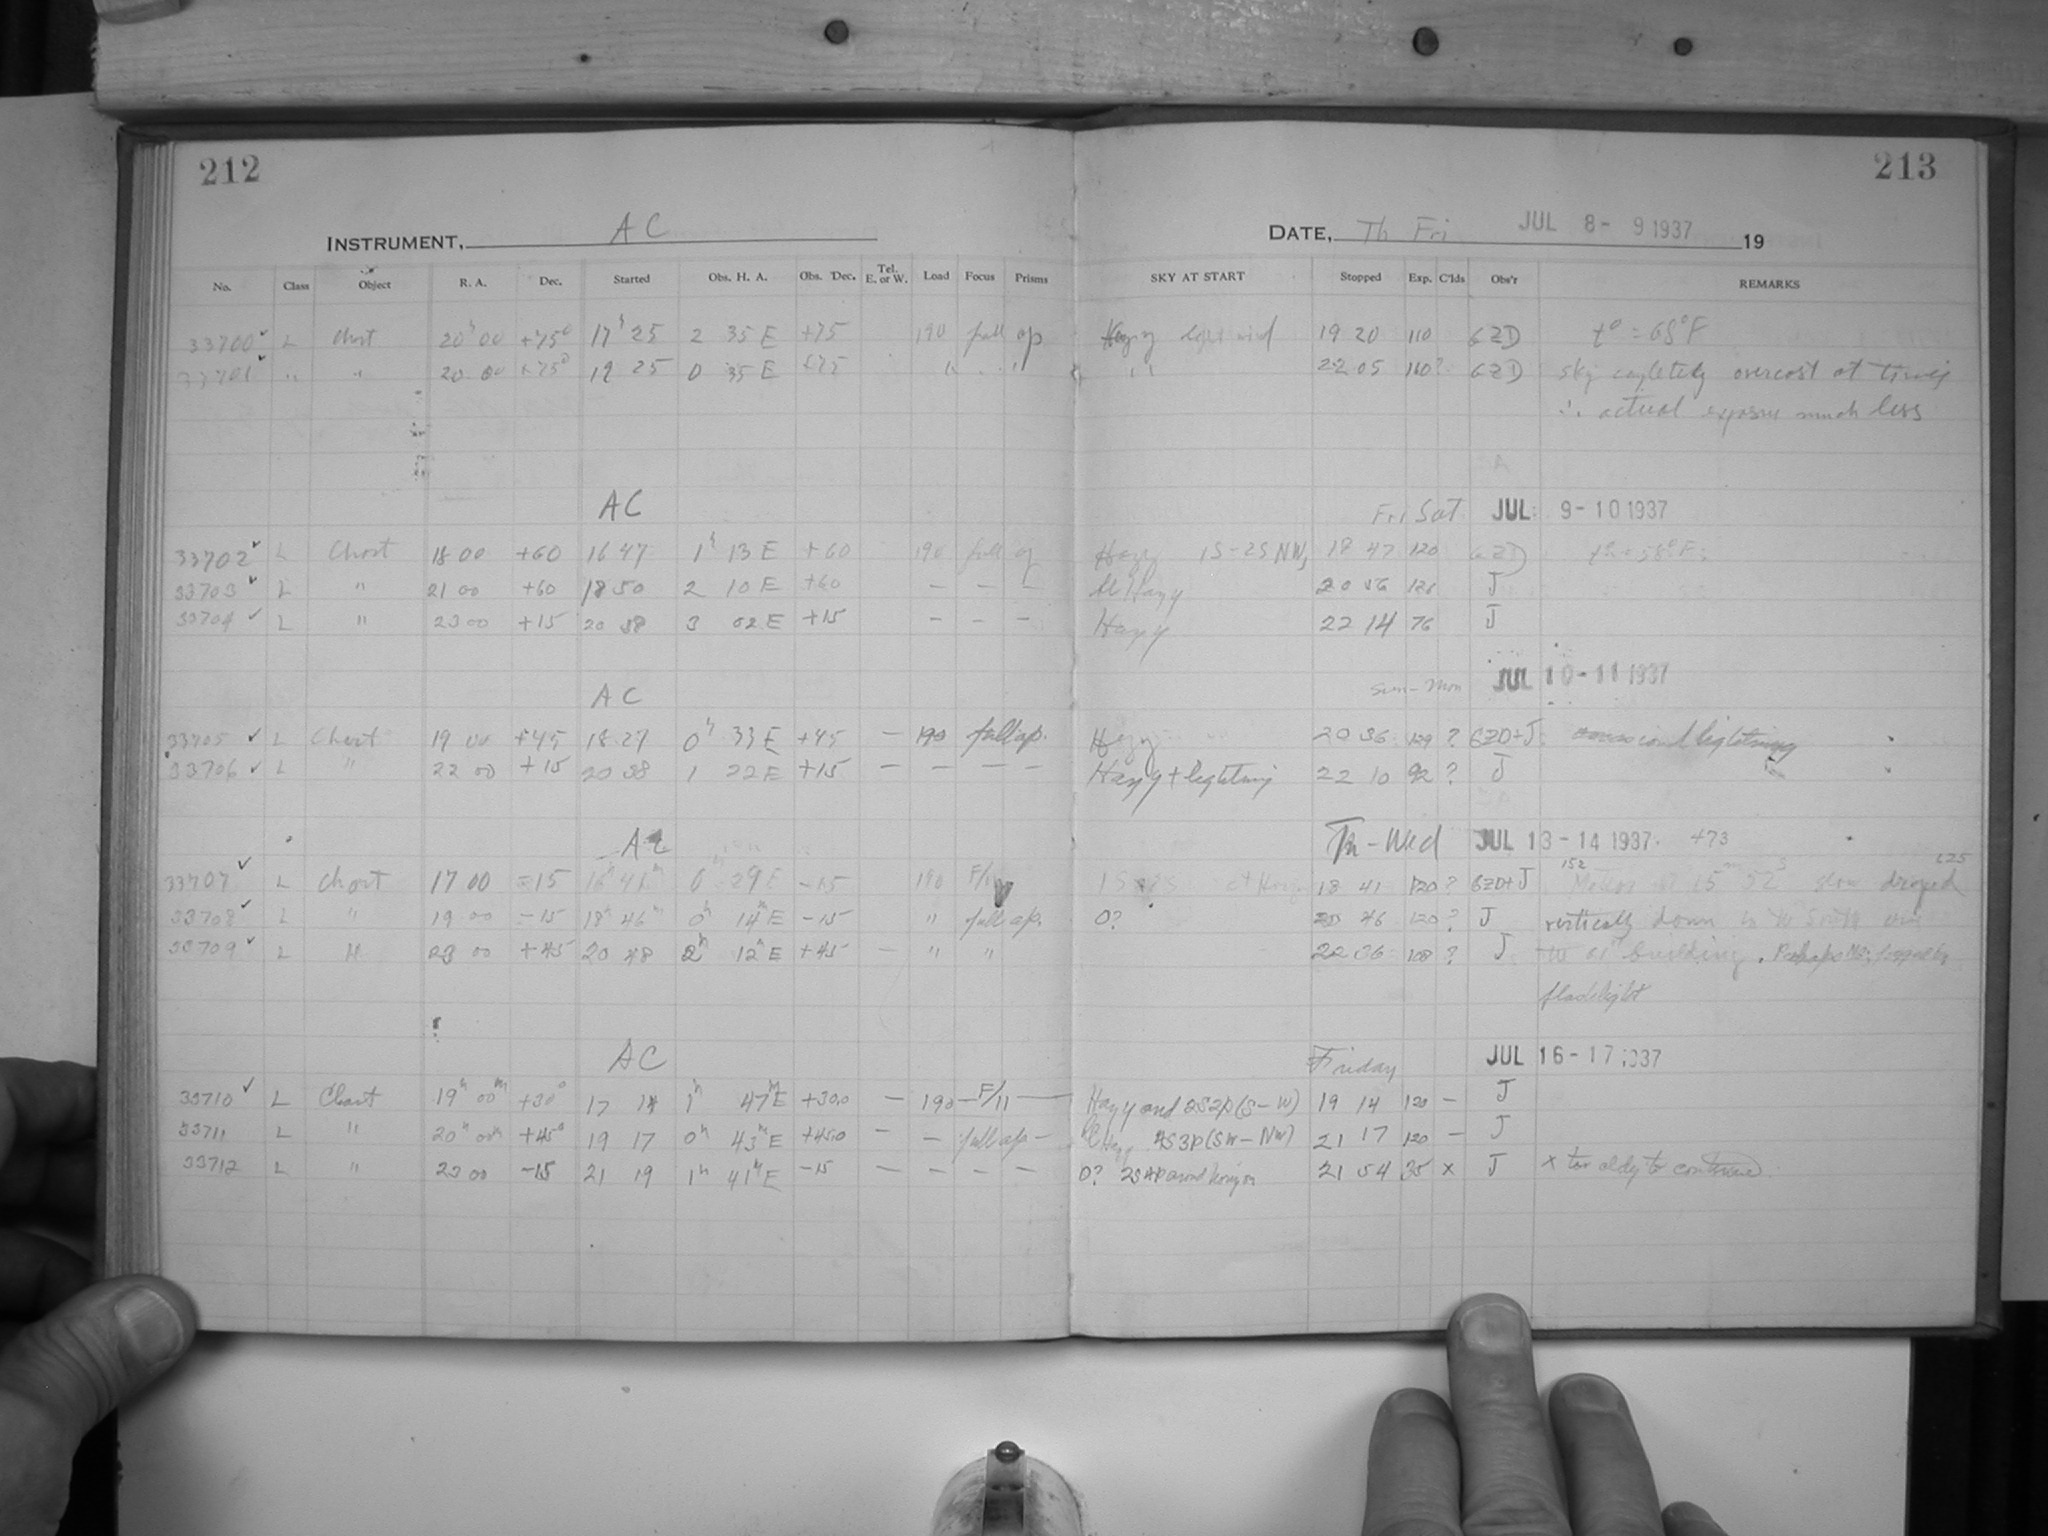 212
213
INSTRUMENT, AC
DATE, Th Fri JUL 8- 9 1937 19
No. Class Object R. A. Dec. Started Obs. H. A. Obs. Dec. Tel. E. or W. Load Focus Prisms SKY AT START Stopped Exp. C'lds Obs'r REMARKS
33700 ✓ L Chart 20h 00 +75° 17h 25 2 35 E +75 190 full ap Hazy light wind 19 20 110 GZD t° = 68°F
33701 ✓ " " 20 00 +75° 19 25 0 35 E +75 " " " 22 05 160? GZD sky completely overcast at times
∴ actual exposure much less
AC Fri Sat JUL 9-10 1937
33702 ✓ L Chart 18 00 +60 16 47 1h 13 E +60 190 full ap Hazy 1S-2S NW, 18 47 120 GZD t° = 58°F
33703 ✓ L " 21 00 +60 18 50 2 10 E +60 — — — Hazy 20 56 126 J
33704 ✓ L " 23 00 +15 20 58 3 02 E +15 — — — Hazy 22 14 76 J
AC Sun-Mon JUL 10-11 1937
33705 ✓ L Chart 19 00 +45 18 27 0h 33 E +45 — 190 full ap. Hazy 20 36 129 ? GZD+J occasional lightning
33706 ✓ L " 22 00 +15 20 38 1 22 E +15 — — — — Hazy + lightning 22 10 92 ? J
AC Tu-Wed JUL 13-14 1937. +73
33707 ✓ L Chart 17 00 -15 16h 41m 0 29 E -15 190 F/11 18 41 120 ? GZD+J Meteor at 15m 52s slow dropped
33708 ✓ L " 19 00 -15 18h 46m 0h 14m E -15 " full ap. 0? 20 46 120 ? J vertically down in the South
33709 ✓ L " 23 00 +45 20 48 2h 12m E +45 — " " 22 36 108 ? J building. Perhaps
flashlight
AC Friday JUL 16-17 1937
33710 ✓ L Chart 19h 00m +30° 17 14 1h 47m E +30.0 — 190 — F/11 — Hazy and 2S2P(S-W) 19 14 120 — J
33711 L " 20h 00m +45° 19 17 0h 43m E +45.0 — — full ap — Hazy 4S3P(SW-NW) 21 17 120 — J
33712 L " 23 00 -15 21 19 1h 41m E -15 — — — — 0? 2S4P around horizon 21 54 35 x J x too cldy to continue